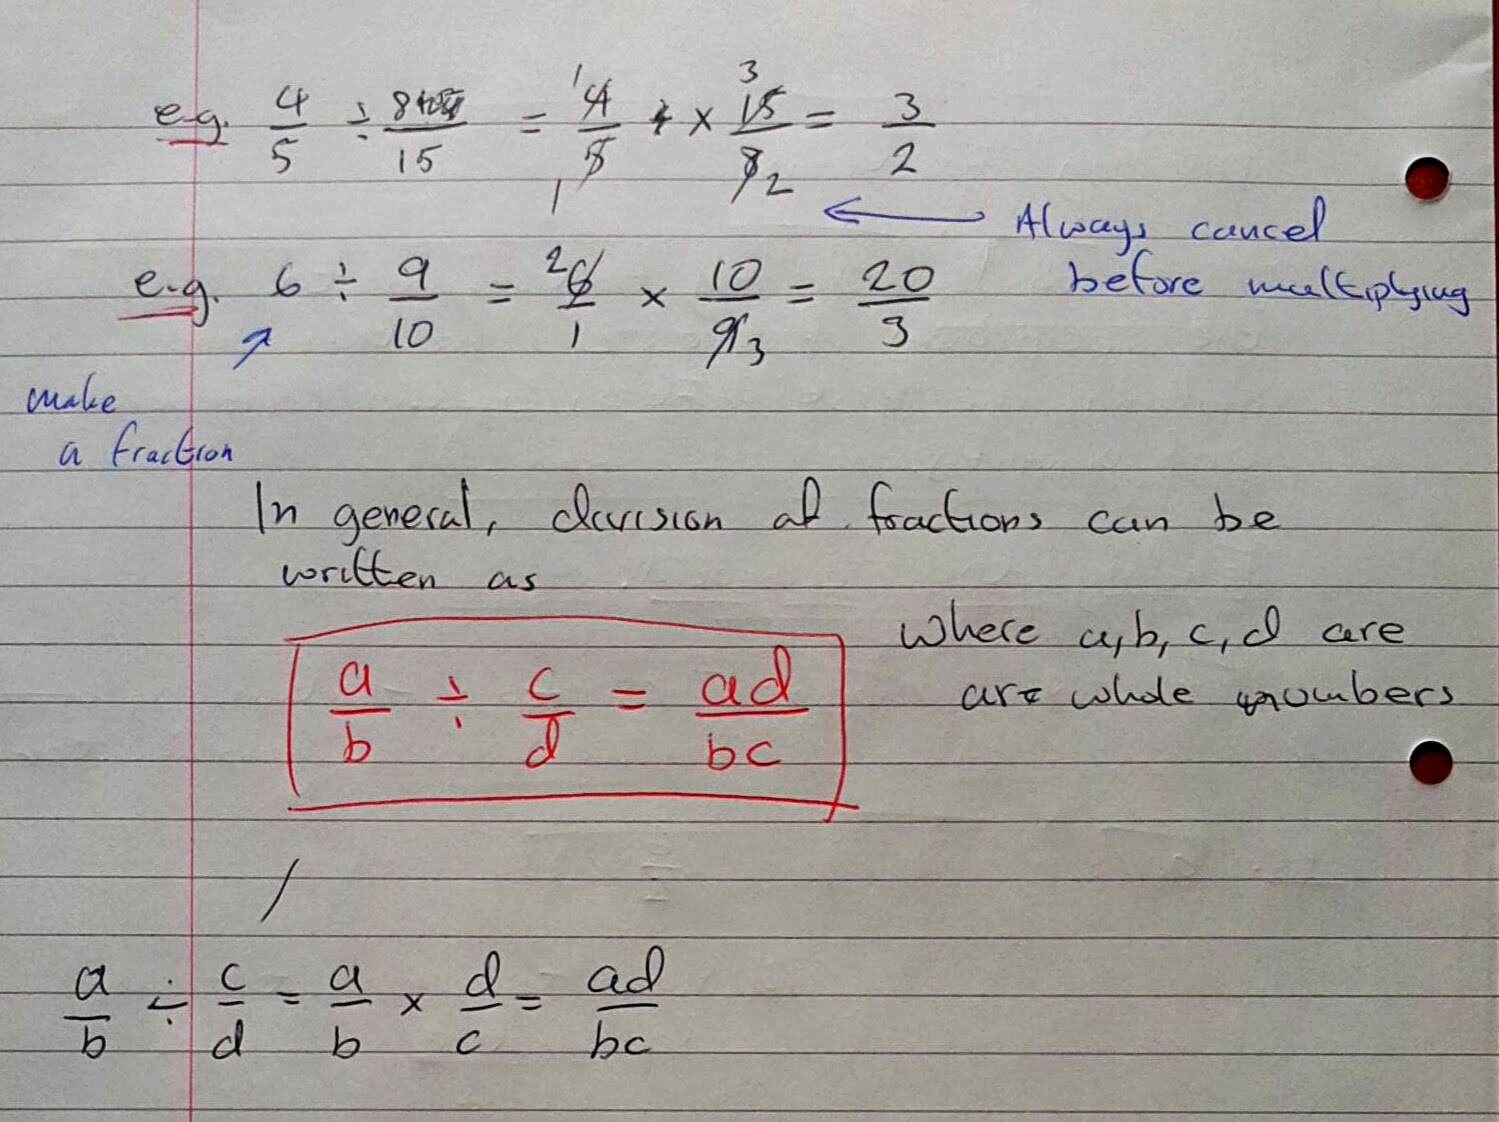 e.g. 4/5 ÷ 8/15 = 4/5 × 15/8 = 3/2
1 1 3 2
Always cancel
before multiplying
e.g. 6 ÷ 9/10 = 6/1 × 10/9 = 20/3
2 3
make
a fraction
In general, division of fractions can be
written as
a/b ÷ c/d = ad/bc
where a, b, c, d are
are whole numbers
a/b ÷ c/d = a/b × d/c = ad/bc